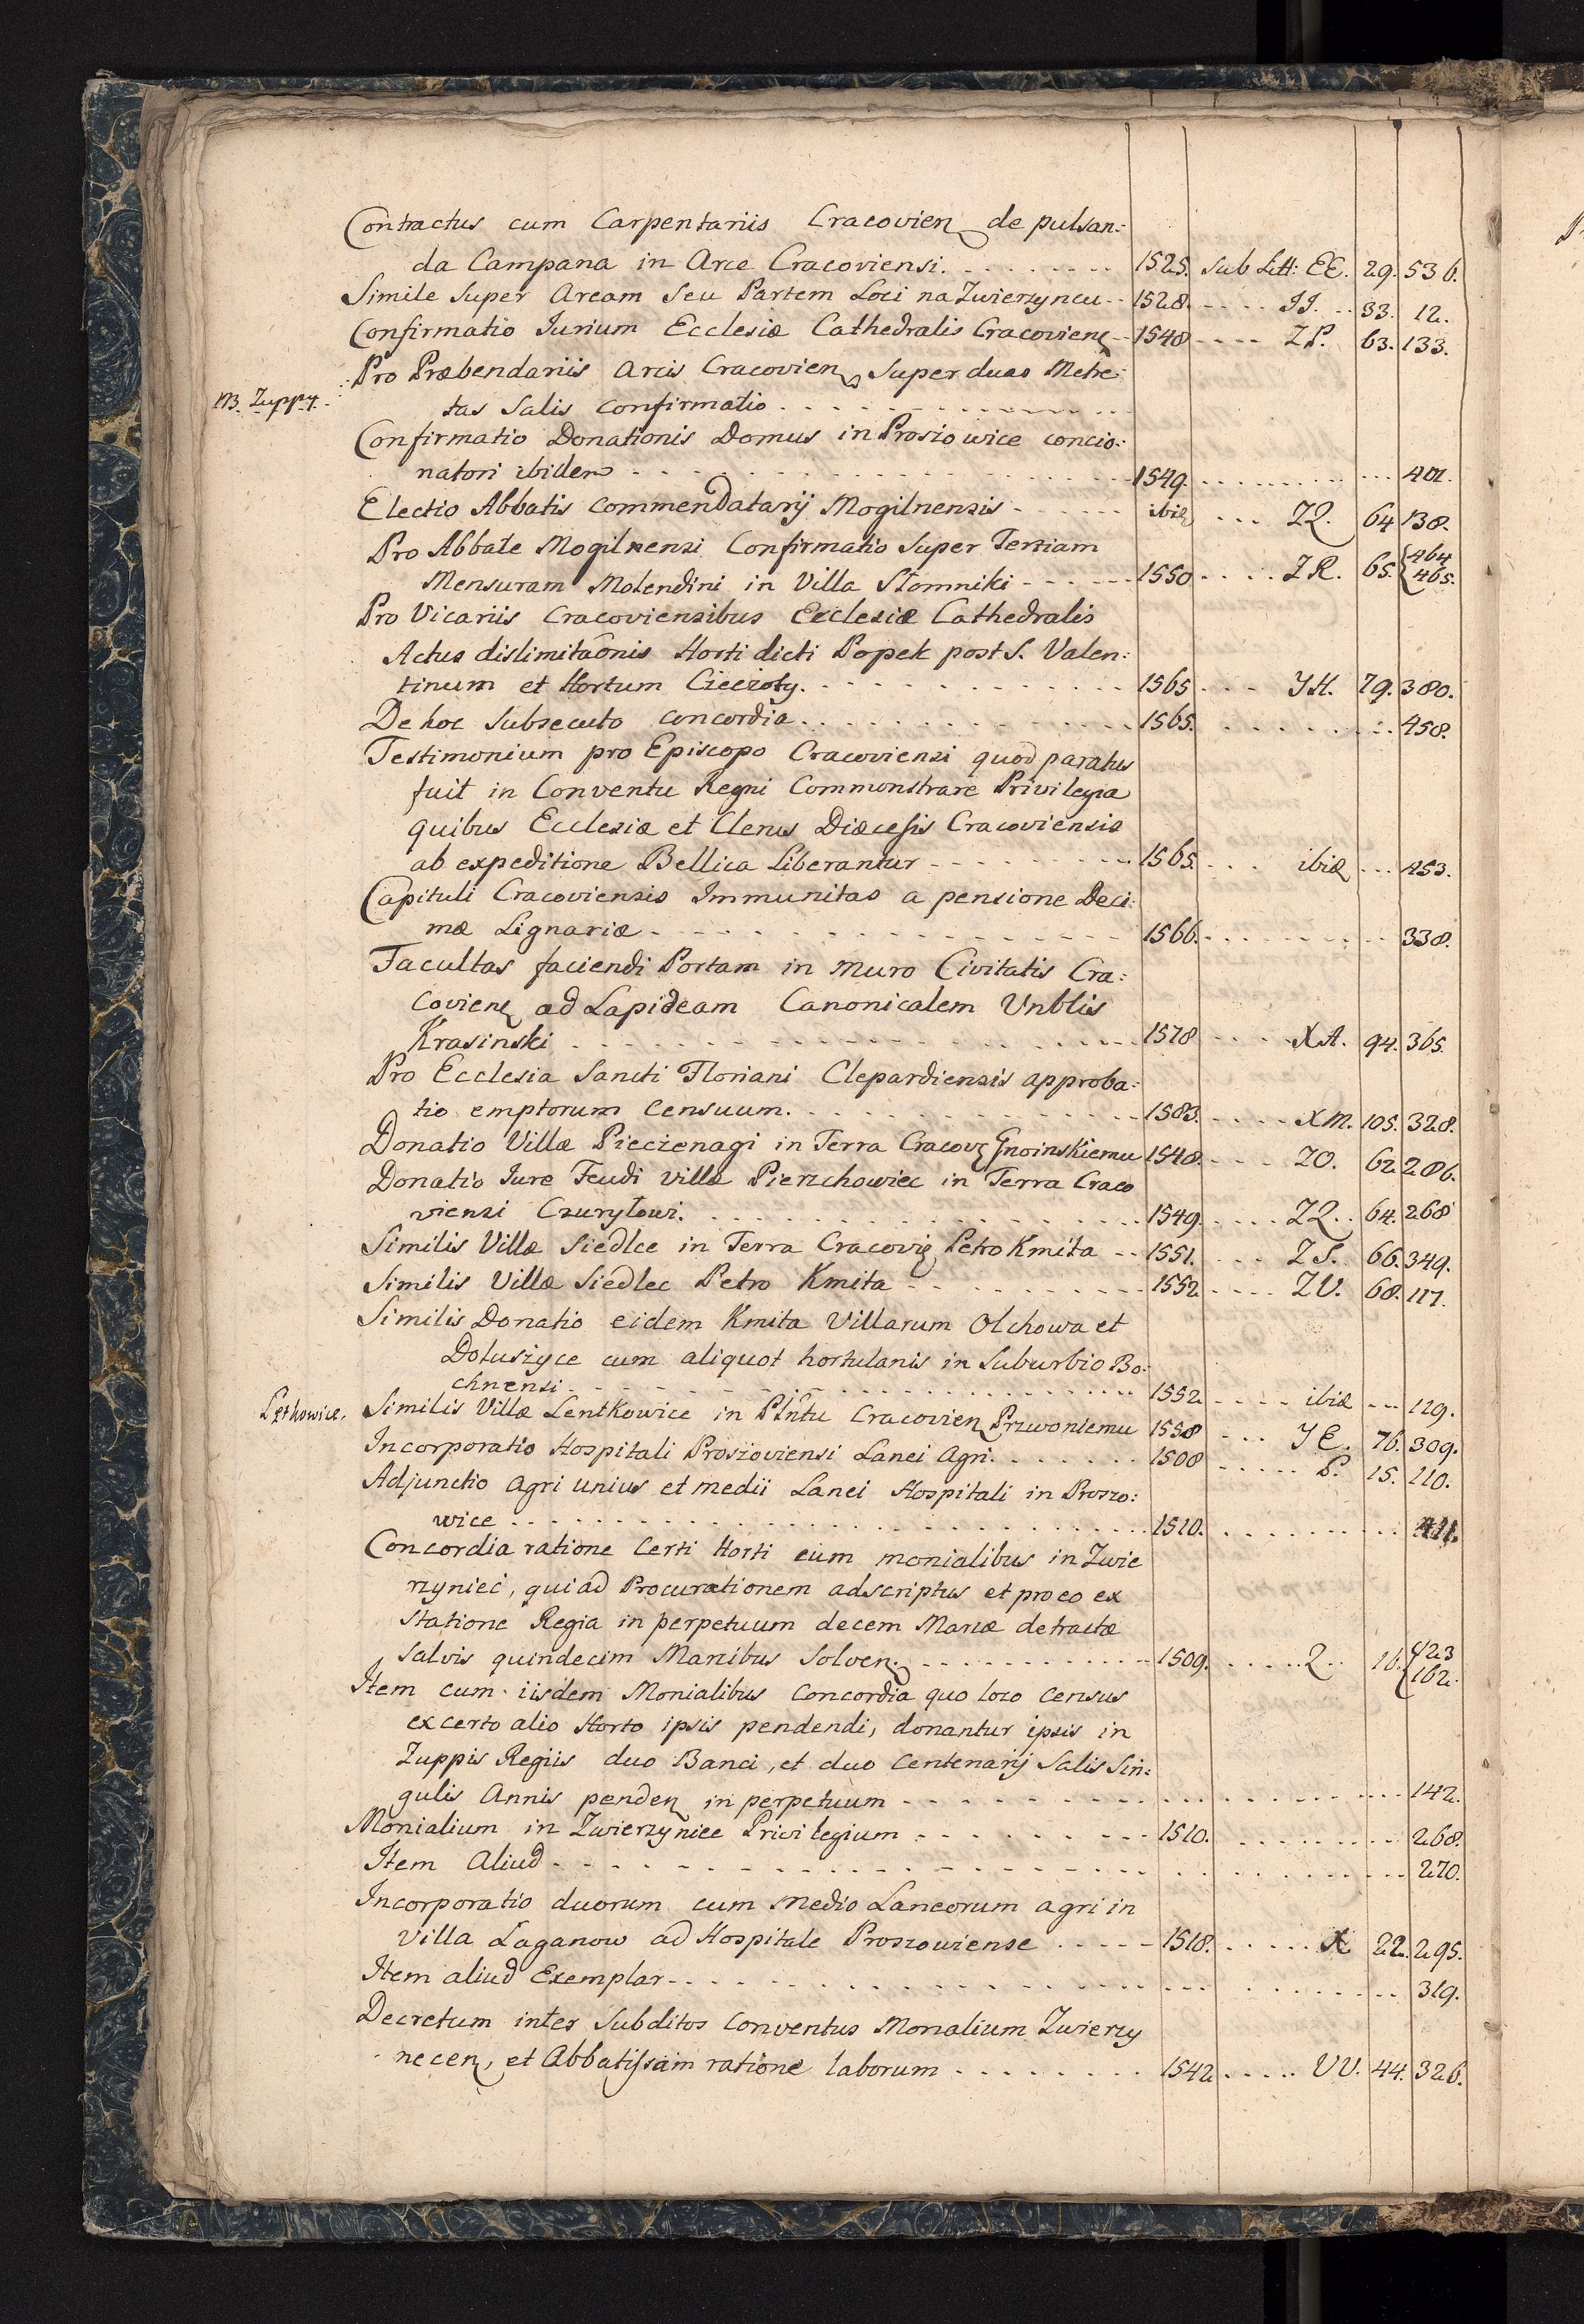 Contractus cum Carpentariis Cracovien de pulsan:
da Campana in Arce Cracoviensi. 1525. sub Litt: EE. 29. 536.
Simile super Aream seu Partem Loci na Zwierzyncu 1528. II. 33. 12.
Confirmatio Iurium Ecclesiæ Cathedralis Cracovien 1548 ZP. 63. 133.
Pro Præbendariis Arcis Cracovien super duas Metre:
NB. Zuppy. tas Salis confirmatio
Confirmatio Donationis Domus in Proszowice concio:
natori ibidem 1549. 401.
Electio Abbatis Commendatarij Mogilnensis ibid ZQ. 64 138.
Pro Abbate Mogilnensi Confirmatio super Tertiam 464
Mensuram Molendini in Villa Słomniki 1550 ZR. 65. 465.
Pro Vicariis Cracoviensibus Ecclesiæ Cathedralis
Actus dislimitaõnis Horti dicti Popek post S. Valen:
tinum et Hortum Ciecioty. 1565 YH. 79. 380.
De hoc subsecuto concordia 1565. 458.
Testimonium pro Episcopo Cracoviensi quod paratus
fuit in Conventu Regni Commonstrare Privilegia
quibus Ecclesiæ et Clerus Diæcesis Cracoviensis
ab expeditione Bellica Liberantur 1565. ibid 453.
Capituli Cracoviensis Immunitas a pensione Deci:
mæ Lignariæ 1566. 338.
Facultas faciendi Portam in muro Civitatis Cra:
covien ad Lapideam Canonicalem Vnblis
Krasinski 1578 XA. 94. 365.
Pro Ecclesia Sancti Floriani Clepardiensis approba:
tio emptorum Censuum. 1583. XM. 105. 328.
Donatio Villæ Pieczenagi in Terra Cracov Gnoinskiemu 1548. ZO. 62 286.
Donatio Iure Feudi Villæ Pierzchowiec in Terra Craco
viensi Czuryłowi. 1549. ZQ. 64. 268
Similis Villæ Siedlce in Terra Cracovie Petro Kmita 1551. ZS. 66. 349.
Similis Villæ Siedlec Petro Kmita 1552 ZV. 68. 117.
Similis Donatio eidem Kmita Villarum Olchowa et
Dołuszyce cum aliquot hortulanis in Suburbio Bo:
chnensi 1552 ibid 129.
Similis Villæ Lentkowice in Plñtu Cracovien Przwoniemu 1558 YE. 76. 309.
Incorporatio Hospitali Proszoviensi Lanei Agri. 1508 P. 15. 110.
Adjunctio agri unius et medii Lanei Hospitali in Proszo:
wice 1510. 411.
Concordia ratione Certi Horti cum monialibus in Zwie
rzyniec, qui ad Procurationem adscriptus et pro eo ex
statione Regia in perpetuum decem Marcæ detractæ
salvis quindecim Marcibus solven. 1509. Q. 16. 123
162.
Item cum iisdem Monialibus Concordia quo loco Census
ex certo alio Horto ipsis pendendi, donantur ipsis in
Zuppis Regiis duo Banci, et duo Centenarij Salis sin:
gulis Annis penden in perpetuum 142.
Monialium in Zwierzyniec Privilegium 1510. 268.
Item Aliud 270.
Incorporatio duorum cum medio Laneorum agri in
Villa Łaganow ad Hospitale Proszowiense 1518. X 22. 295.
Item aliud Exemplar 319.
Decretum inter Subditos Conventus Monalium Zwierzy
necen, et Abbatissam ratione laborum 1542 VV. 44. 326.